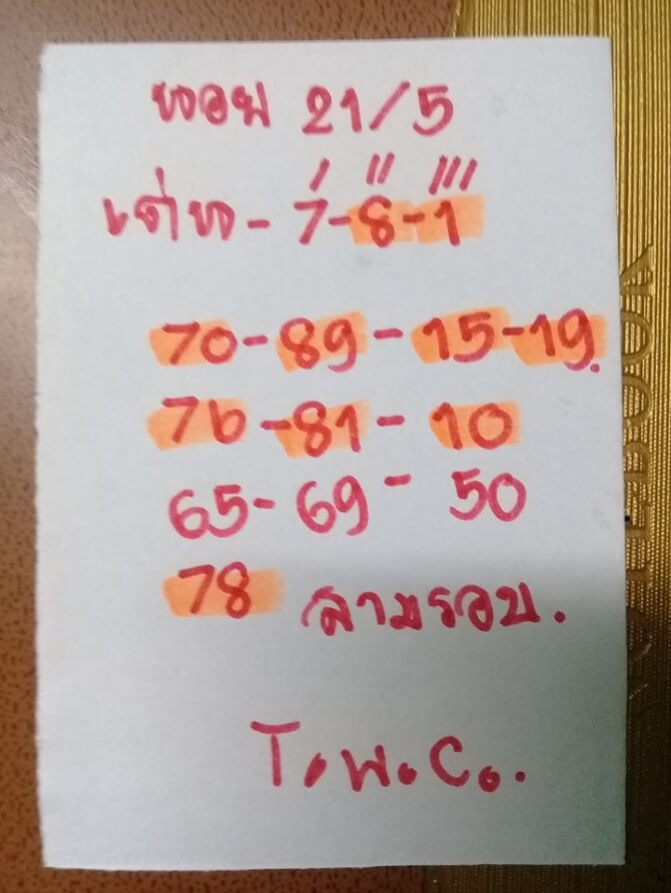 หอย 21/5
เด่น - 7-8-1
70-89-15-19.
76-81-10
65-69-50
78 สามรอบ.
T.W.C.
NOTEBOOK